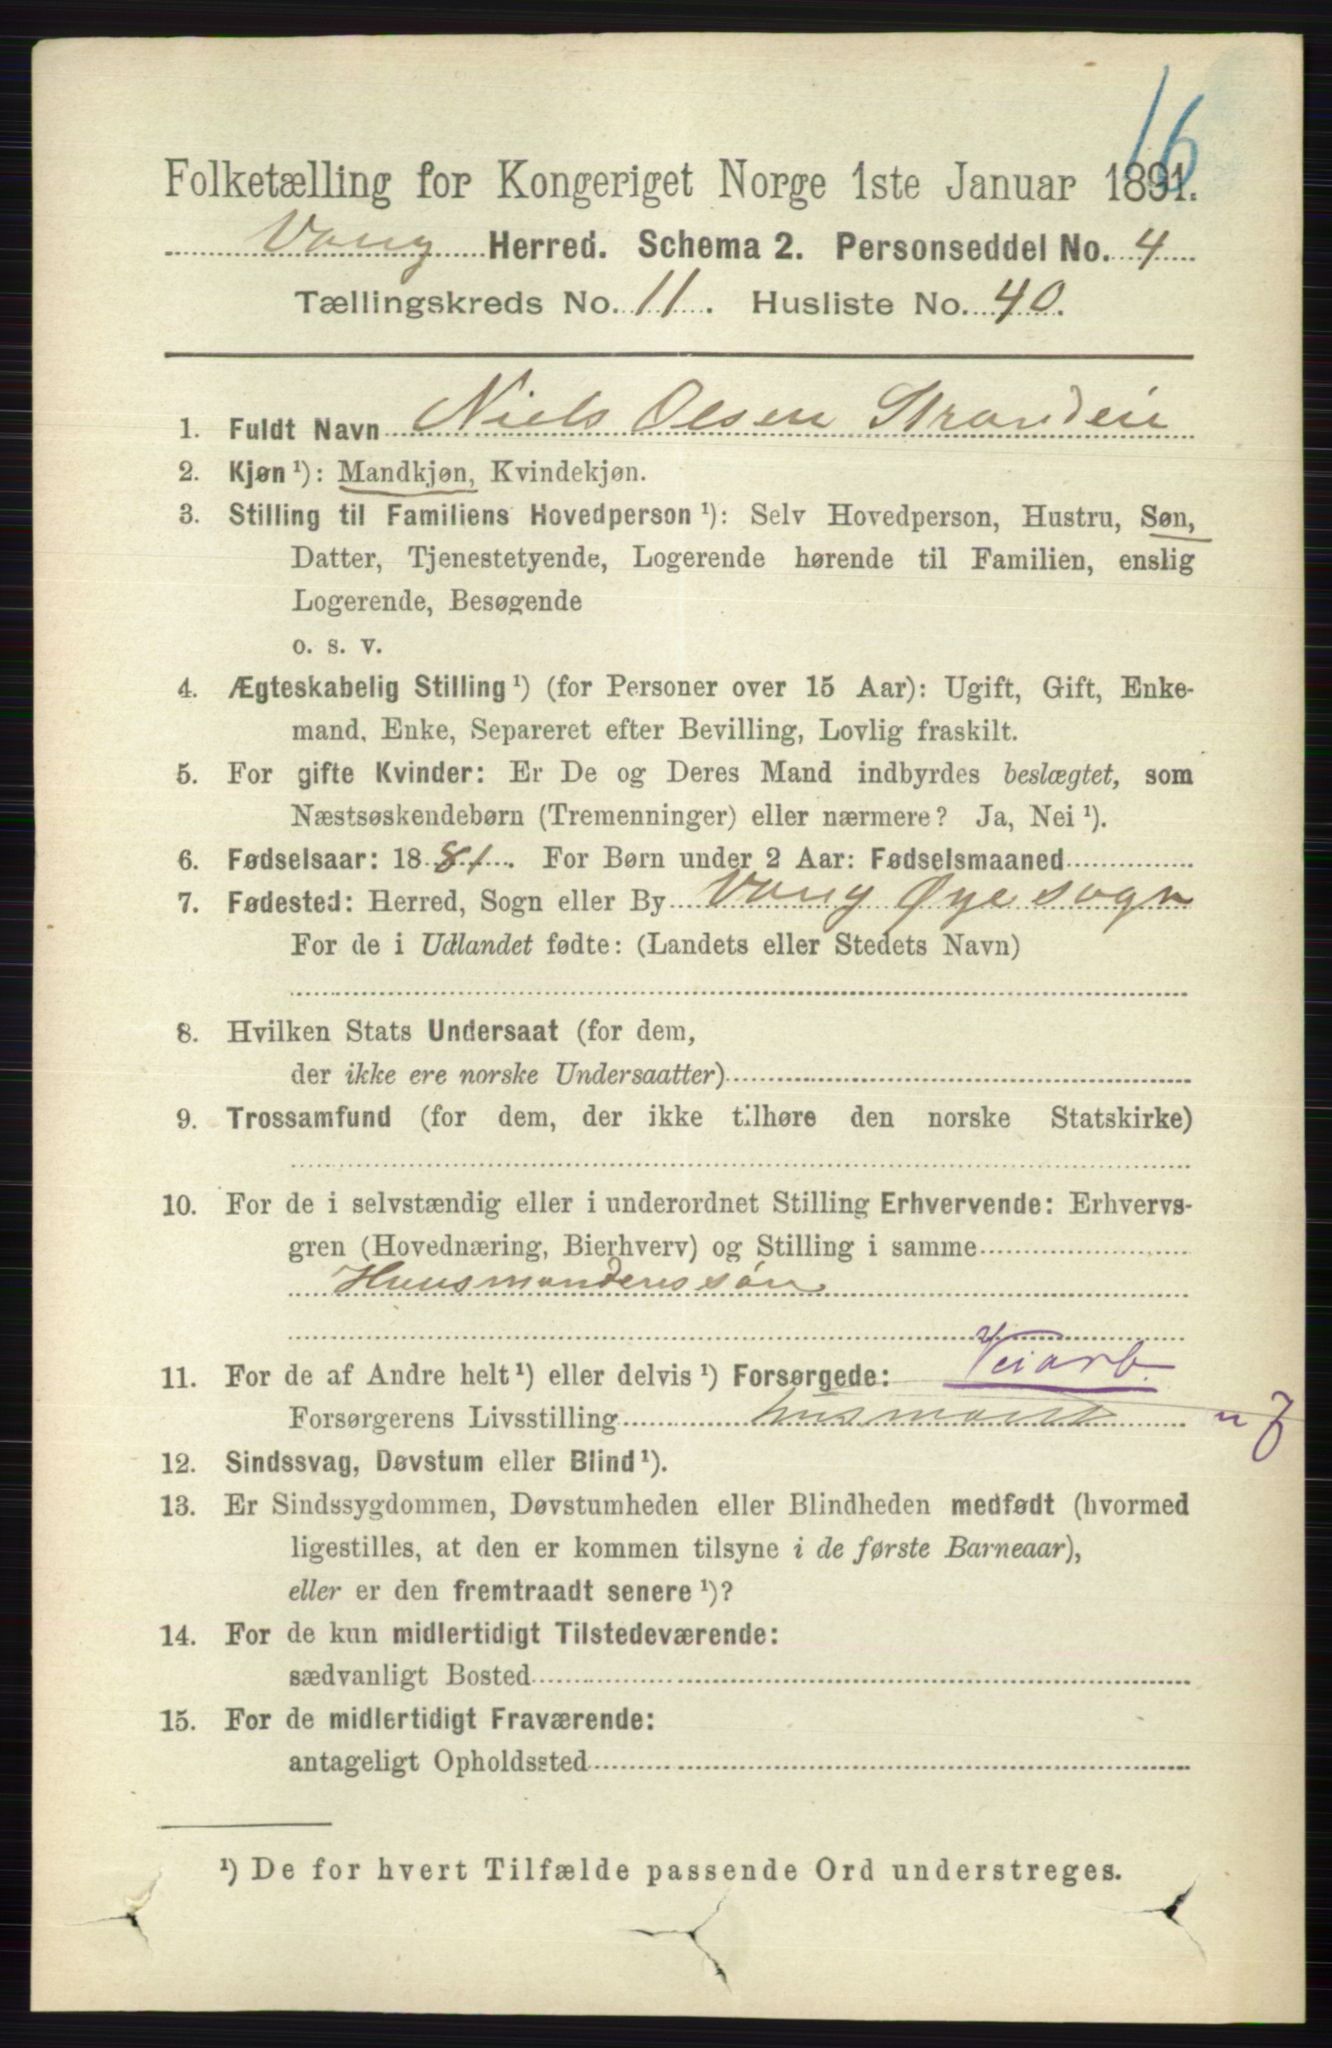 16
Folketælling for Kongeriget Norge 1ste Januar 1891.
Vang Herred. Schema 2. Personseddel No. 4
Tællingskreds No. 11. Husliste No. 40.
1. Fuldt Navn Niels Olsen Strandein
2. Kjøn ¹): Mandkjøn, Kvindekjøn.
3. Stilling til Familiens Hovedperson ¹): Selv Hovedperson, Hustru, Søn,
Datter, Tjenestetyende, Logerende hørende til Familien, enslig
Logerende, Besøgende
o. s. v.
4. Ægteskabelig Stilling ¹) (for Personer over 15 Aar): Ugift, Gift, Enke-
mand, Enke, Separeret efter Bevilling, Lovlig fraskilt.
5. For gifte Kvinder: Er De og Deres Mand indbyrdes beslægtet, som
Næstsøskendebørn (Tremenninger) eller nærmere? Ja, Nei ¹).
6. Fødselsaar: 1881. For Børn under 2 Aar: Fødselsmaaned
7. Fødested: Herred, Sogn eller By Vang Øye sogn
For de i Udlandet fødte: (Landets eller Stedets Navn)
8. Hvilken Stats Undersaat (for dem,
der ikke ere norske Undersaatter)
9. Trossamfund (for dem, der ikke tilhøre den norske Statskirke)
10. For de i selvstændig eller i underordnet Stilling Erhvervende: Erhvervs-
gren (Hovednæring, Bierhverv) og Stilling i samme
Huusmandenssøn
11. For de af Andre helt ¹) eller delvis ¹) Forsørgede: Veiarb.
Forsørgerens Livsstilling husmand
12. Sindssvag, Døvstum eller Blind ¹).
13. Er Sindssygdommen, Døvstumheden eller Blindheden medfødt (hvormed
ligestilles, at den er kommen tilsyne i de første Barneaar),
eller er den fremtraadt senere ¹)?
14. For de kun midlertidigt Tilstedeværende:
sædvanligt Bosted
15. For de midlertidigt Fraværende:
antageligt Opholdssted
¹) De for hvert Tilfælde passende Ord understreges.